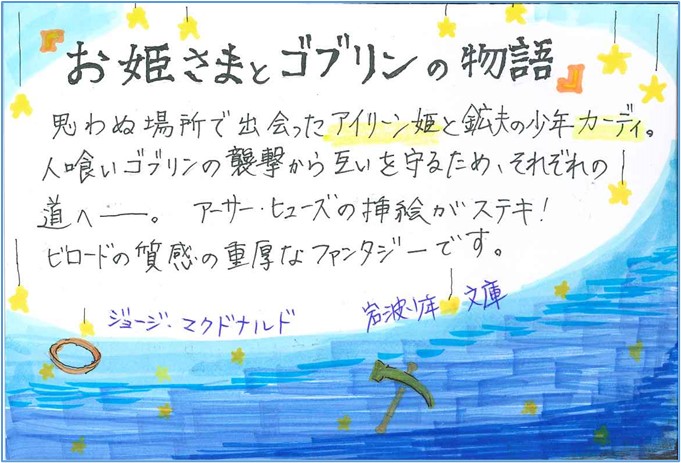 『お姫さまとゴブリンの物語』
思わぬ場所で出会ったアイリーン姫と鉱夫の少年カーディ。
人喰いゴブリンの襲撃から互いを守るため、それぞれの
道へ――。 アーサー・ヒューズの挿絵がステキ!
ビロードの質感の重厚なファンタジーです。
ジョージ・マクドナルド 岩波少年文庫